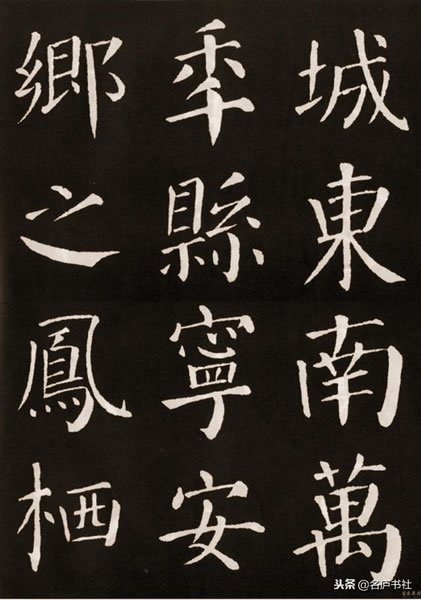 城東南萬
年縣寧安
鄉之鳳栖
头条@名庐书社